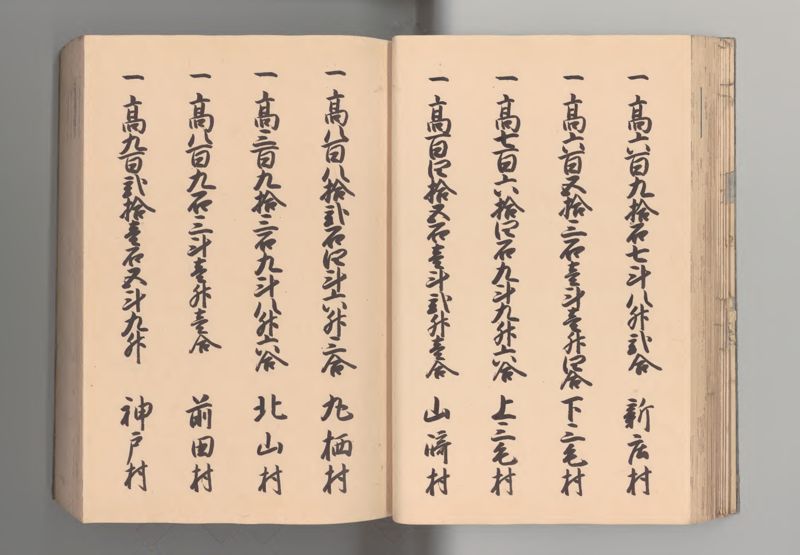 一高六百九拾石七斗八升弐合 新庄村
一高六百五拾三石壱斗壱升四合 下三毛村
一高七百六拾四石九斗九升六合 上三毛村
一高百四拾五石壱斗弐升壱合 山﨑村
一高八百八拾弐石四斗六升三合 丸栖村
一高三百九拾三石九斗八升六合 北山村
一高八百九石三斗壱升壱合 前田村
一高九百弐拾壱石五斗九升 神戸村